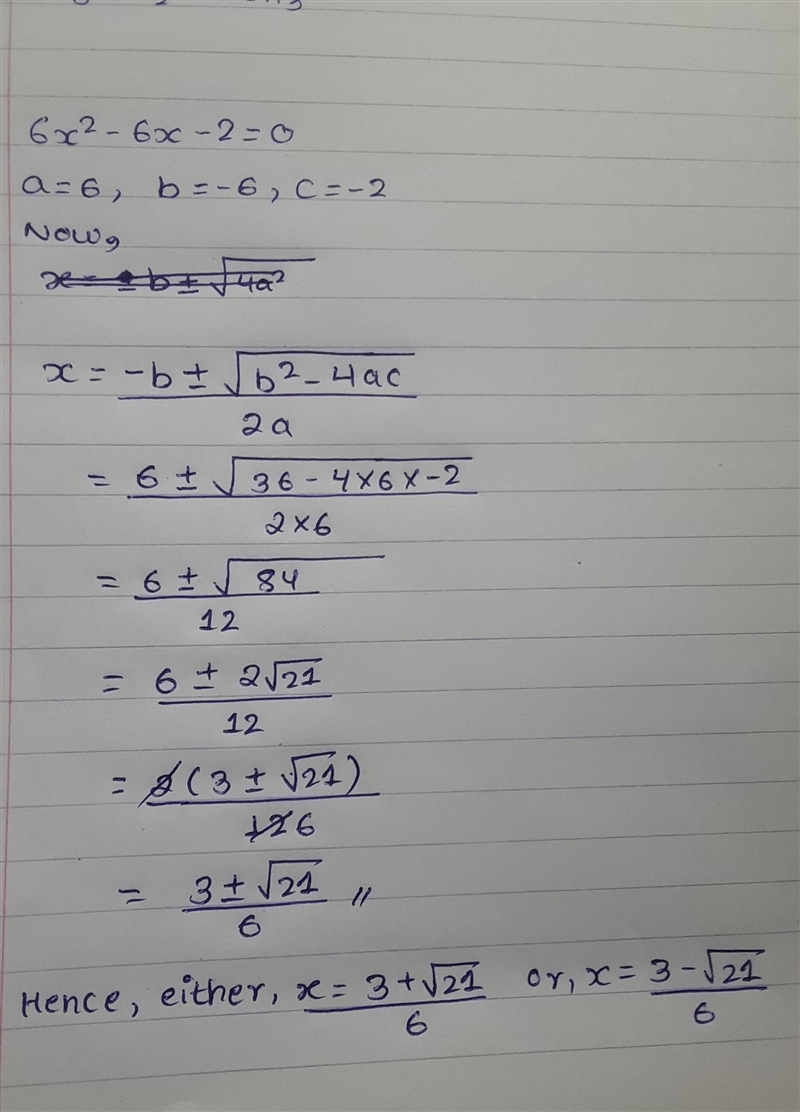 6x² - 6x - 2 = 0
a = 6, b = -6, c = -2
Now,
x = -b ± √(b² - 4ac) / 2a
= 6 ± √(36 - 4×6×-2) / 2×6
= 6 ± √84 / 12
= 6 ± 2√21 / 12
= 2(3 ± √21) / 12 6
= 3 ± √21 / 6 //
Hence, either, x = 3 + √21 / 6 or, x = 3 - √21 / 6